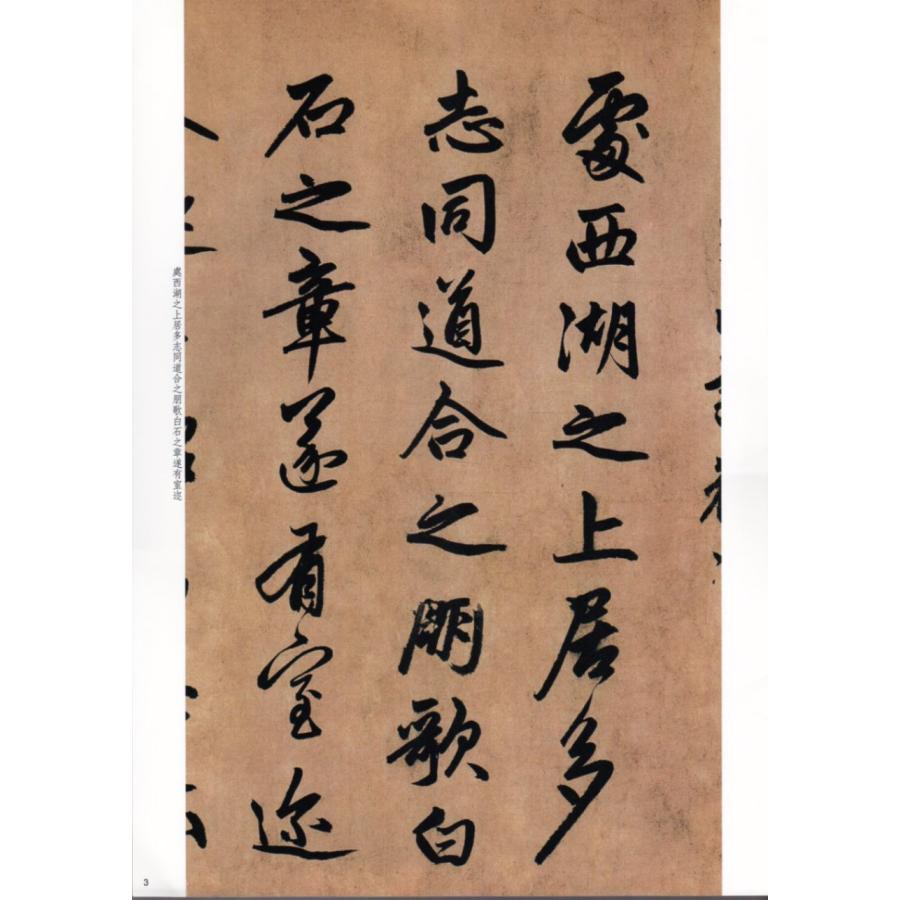 處西湖之上居多
志同道合之朋歌白
石之章遂有室迩
處西湖之上居多志同道合之朋歌白石之章遂有室迩
3